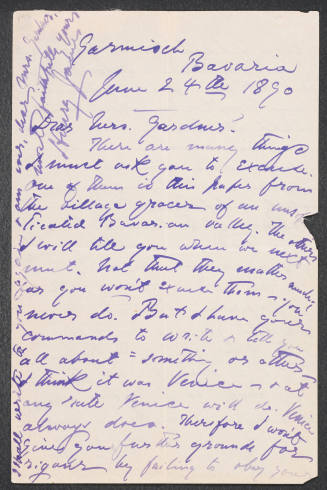 Garmisch
Bavaria
June 24th 1890
Dear Mrs. Gardner.
There are many things
I must ask you to excuse.
One of them is this paper from
the village grocer of an unsoph-
isticated Bavarian valley. The others
I will tell you when we next
meet. Not that they matter much,
as you won't excuse them - you
never do. But I have your
commands to write & tell you
all about = something or other.
I think it was Venice - & at
any rate Venice will do. Venice
always does. Therefore I won't
give you further grounds for
rigour by failing to obey your
shall write to you again
ever, dear Mrs. Gardner,
most faithfully yours
Henry James